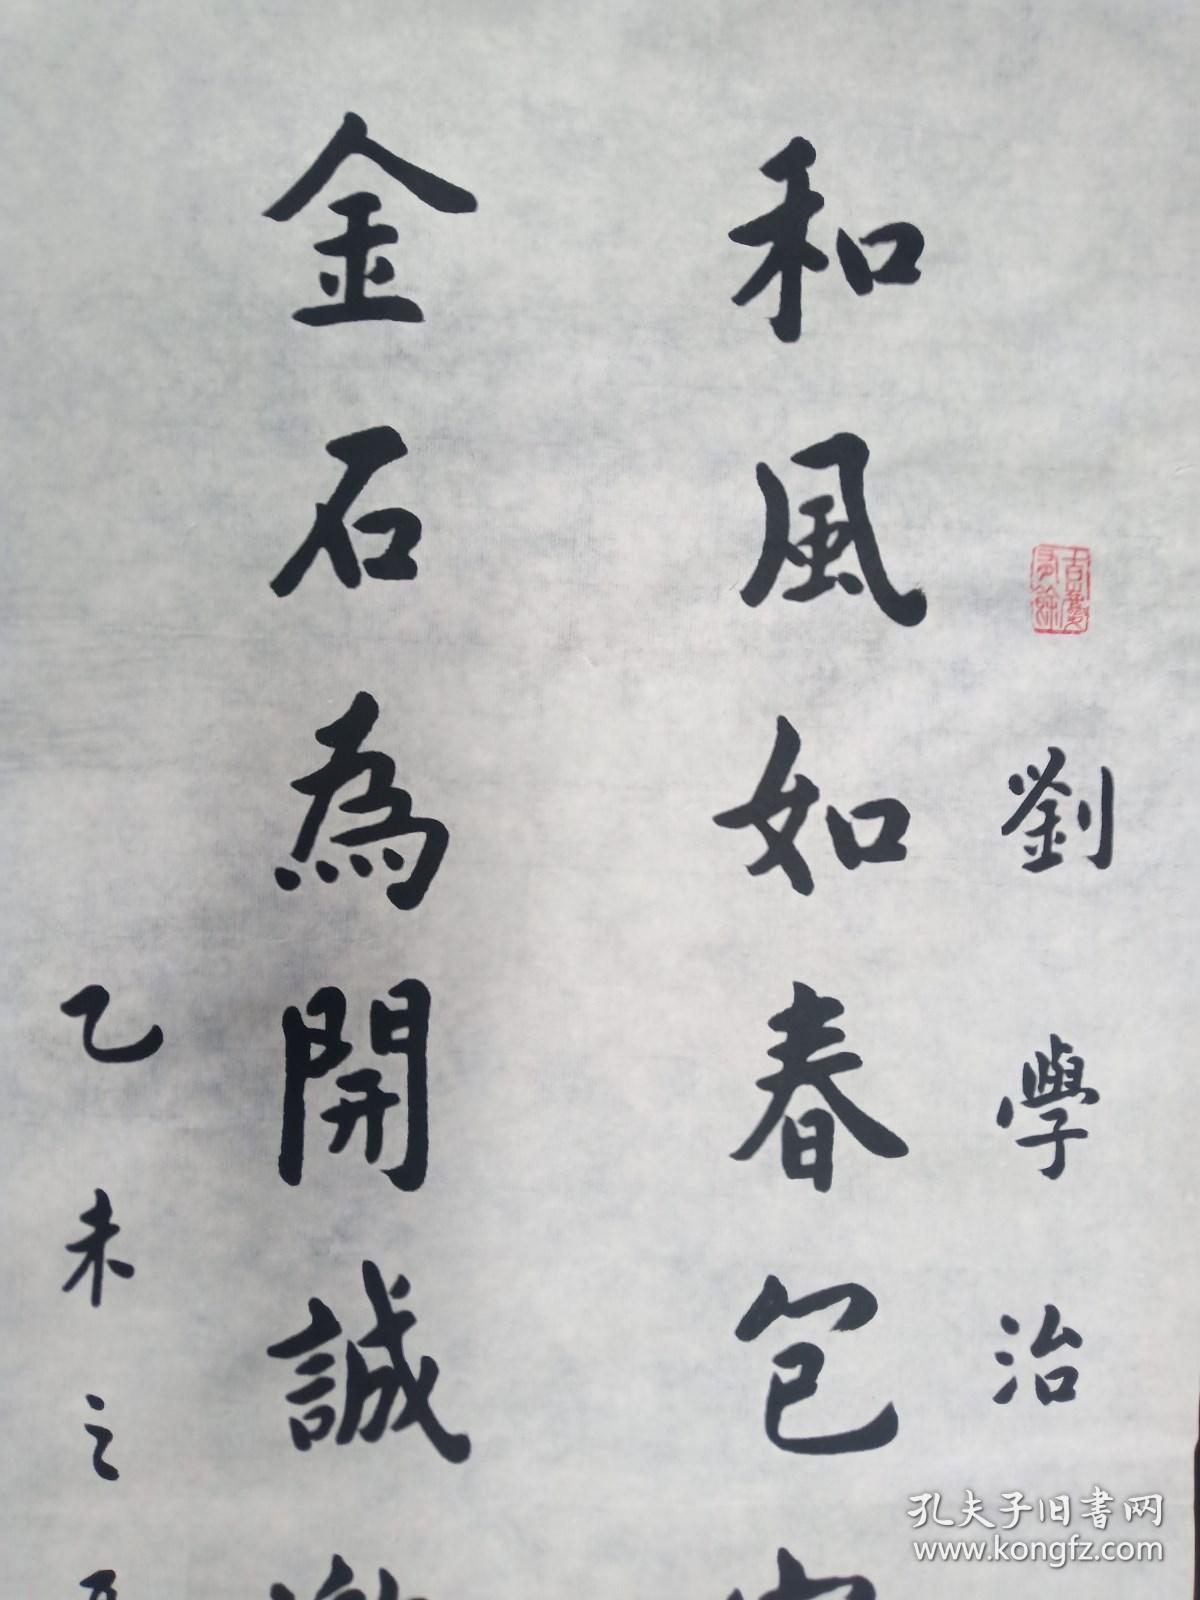 劉學治
吉慶有餘
和風如春包
金石為開誠
乙未之
孔夫子旧書网
www.kongfz.com